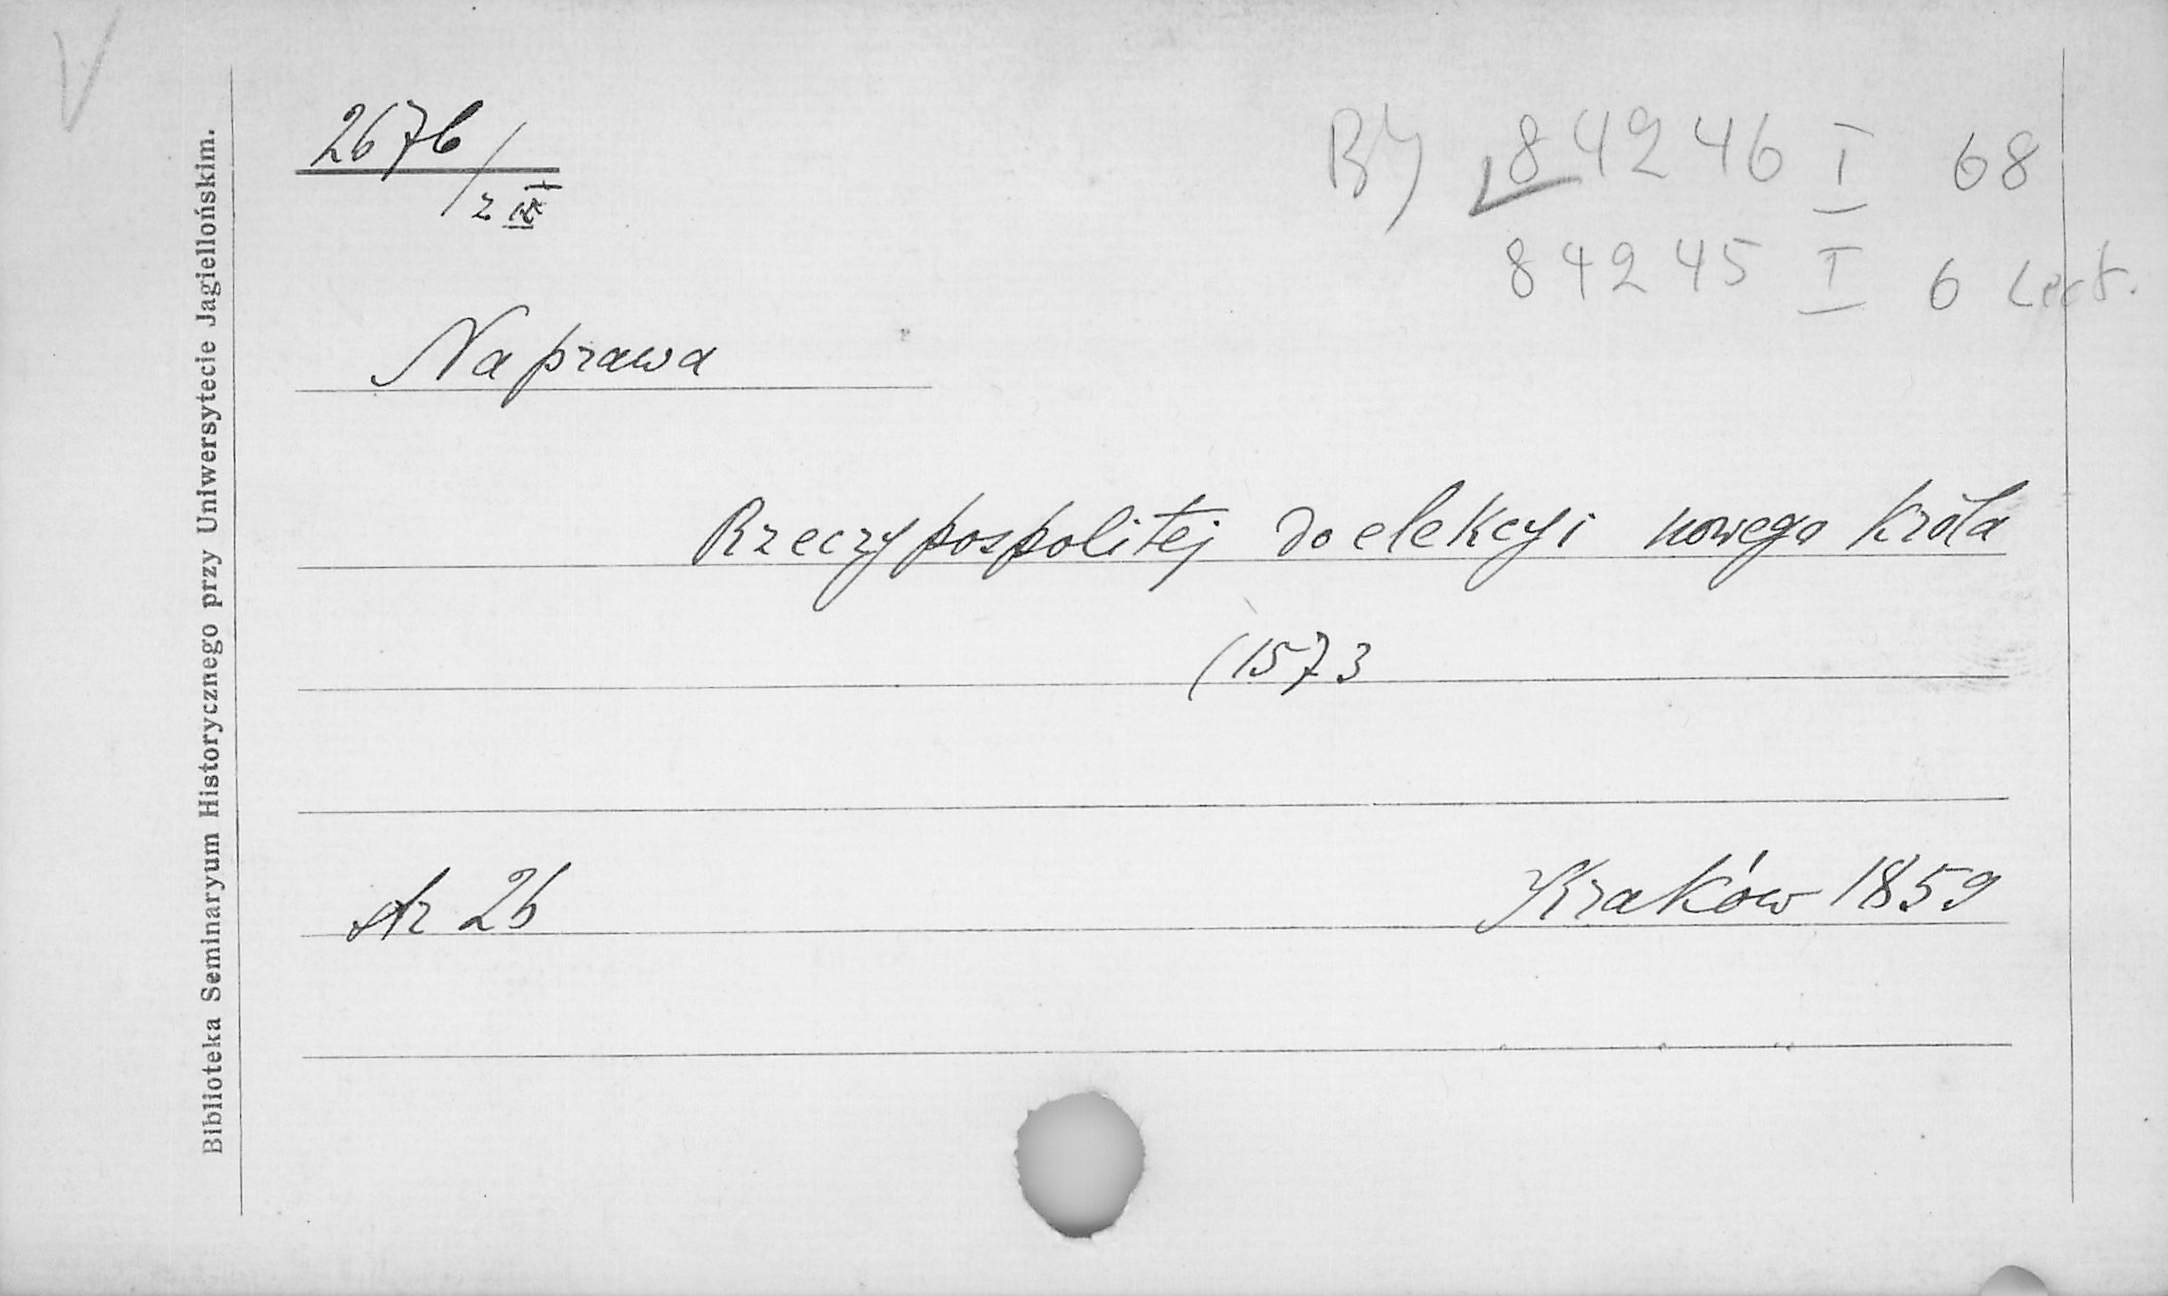 V
2676/z IX
BJ 84246 I 68
84245 I 6
Naprawa
Rzeczypospolitej do elekcyi nowego króla
(1573
str 26 Kraków 1859
Biblioteka Seminaryum Historycznego przy Uniwersytecie Jagiellońskim.